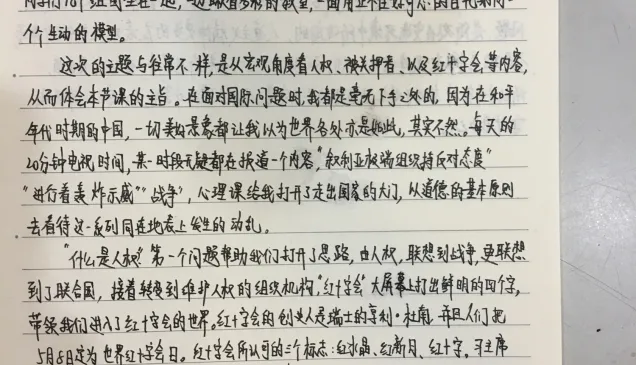 个个生动的模型。
这次的主题与往常不一样,是从宏观角度看人权、被关押者、以及红十字会等内容,
从而体会本节课的主旨。在面对国际问题时,我都是毫无下手之处的,因为在和平
年代时期的中国,一切美如悬素都让我以为世界各处亦是如此,其实不然。每天的
20分钟电视时间,某一时段无疑都在报道一个内容,“叙利亚极端组织持反对态度”
“进行着轰炸示威”“战争”,心理课给我打开了走出国家的大门,以道德的基本原则
去看待这一系列同在地表上发生的动乱。
“什么是人权”第一个问题帮助我们打开了思路,由人权,联想到战争,更联想
到了联合国,接着转变到维护人权的组织机构,“红十字会”大屏幕上打出鲜明的四个字,
带领我们进入了红十字会的世界。红十字会的创始人是瑞士的亨利·杜南,并且人们把
5月8日定为世界红十字会日。红十字会所认可的三个标志:红水晶、红新月、红十字。习主席